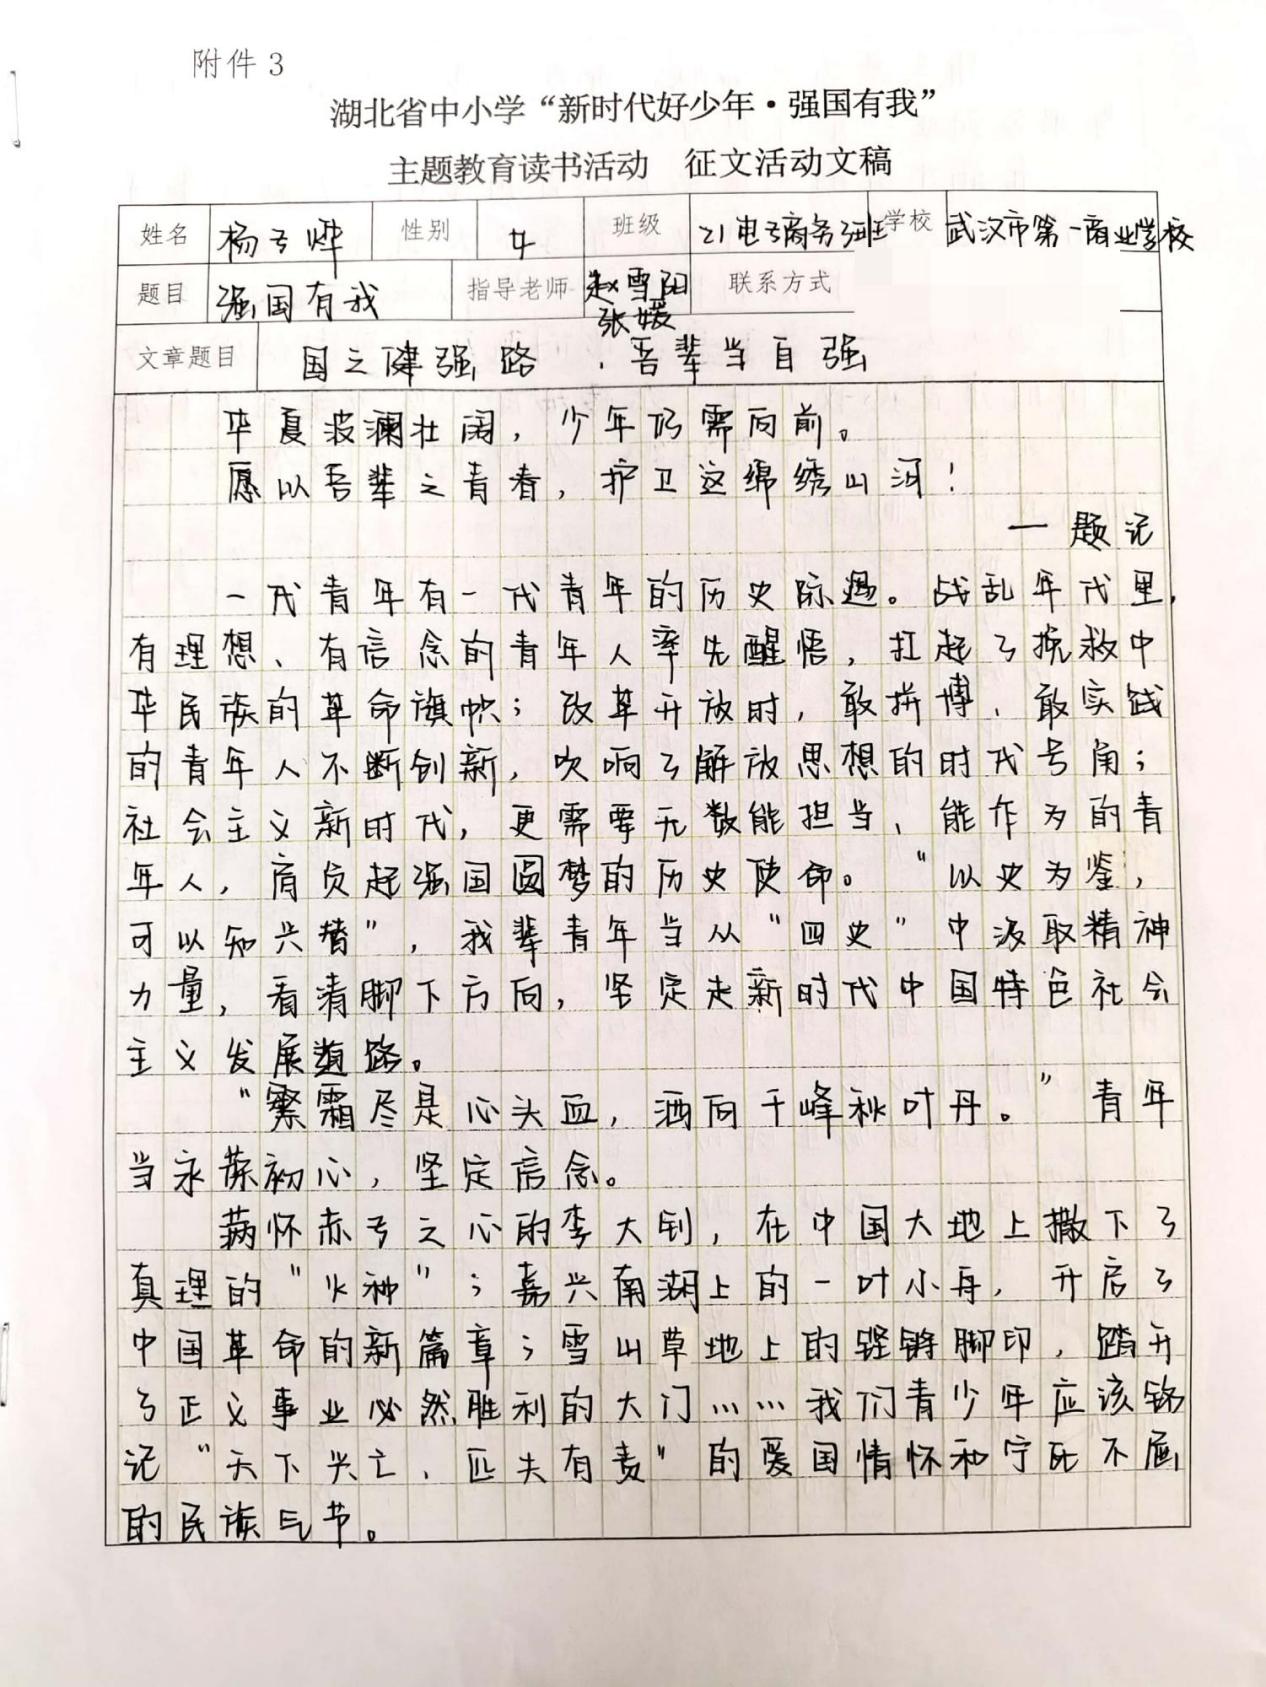 附件3
湖北省中小学“新时代好少年·强国有我”
主题教育读书活动 征文活动文稿
姓名 杨子烨 性别 女 班级 21电子商务3班 学校 武汉市第一商业学校
题目 强国有我 指导老师 赵雪阳 张媛 联系方式
文章题目 国之健强路，吾辈当自强
华夏波澜壮阔，少年仍需向前。
愿以吾辈之青春，护卫这绵绣山河！
—题记
一代青年有一代青年的历史际遇。战乱年代里，
有理想、有信念的青年人率先醒悟，扛起了挽救中
华民族的革命旗帜；改革开放时，敢拼博、敢实践
的青年人不断创新，吹响了解放思想的时代号角；
社会主义新时代，更需要无数能担当、能作为的青
年人，肩负起强国圆梦的历史使命。“以史为鉴，
可以知兴替”，我辈青年当从“四史”中汲取精神
力量，看清脚下方向，坚定走新时代中国特色社会
主义发展道路。
“繁霜尽是心头血，洒向千峰秋叶丹。”青年
当永葆初心，坚定信念。
满怀赤子之心的李大钊，在中国大地上撒下了
真理的“火种”；嘉兴南湖上的一叶小舟，开启了
中国革命的新篇章；雪山草地上的铿锵脚印，踏开
了正义事业必然胜利的大门……我们青少年应该铭
记“天下兴亡、匹夫有责”的爱国情怀和宁死不屈
的民族气节。